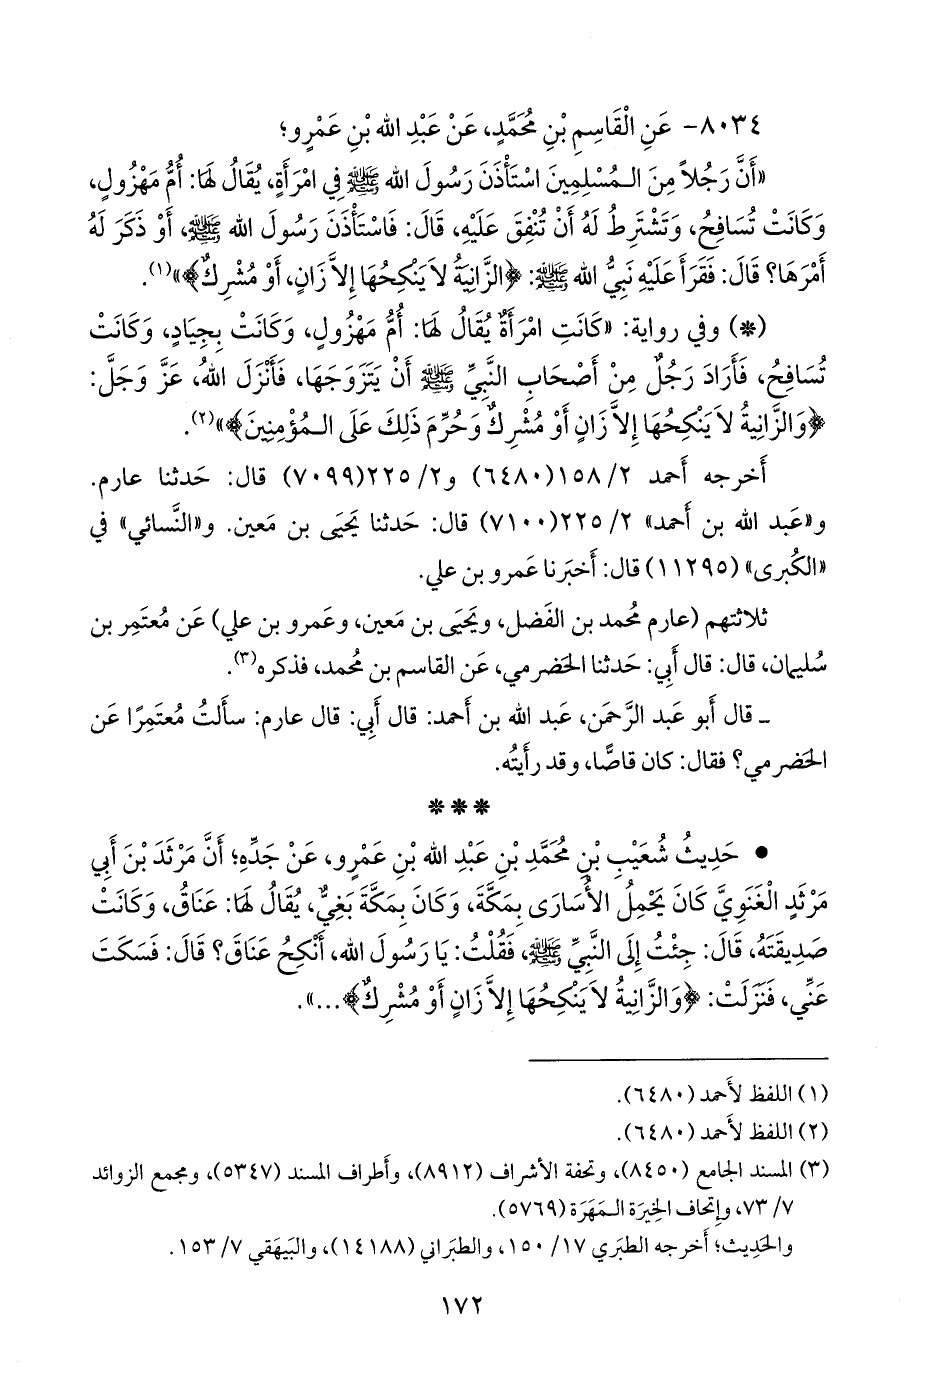 ٨٠٣٤- عَنِ الْقَاسِمِ بْنِ مُحَمَّدٍ، عَنْ عَبْدِ الله بْنِ عَمْرٍو؛
«أَنَّ رَجُلاً مِنَ الـمُسْلِمِينَ اسْتَأْذَنَ رَسُولَ الله ﷺ فِي امْرَأَةٍ، يُقَالُ لَهَا: أُمُّ مَهْزُولٍ،
وَكَانَتْ تُسَافِحُ، وَتَشْتَرِطُ لَهُ أَنْ تُنْفِقَ عَلَيْهِ، قَالَ: فَاسْتَأْذَنَ رَسُولَ الله ﷺ، أَوْ ذَكَرَ لَهُ
أَمْرَهَا؟ قَالَ: فَقَرَأَ عَلَيْهِ نَبِيُّ الله ﷺ: ﴿الزَّانِيَةُ لاَ يَنْكِحُهَا إِلاَّ زَانٍ، أَوْ مُشْرِكٌ﴾»(١).
(*) وفي رواية: «كَانَتِ امْرَأَةٌ يُقَالُ لَهَا: أُمُّ مَهْزُولٍ، وَكَانَتْ بِجِيَادٍ، وَكَانَتْ
تُسَافِحُ، فَأَرَادَ رَجُلٌ مِنْ أَصْحَابِ النَّبِيِّ ﷺ أَنْ يَتَزَوَّجَهَا، فَأَنْزَلَ اللهُ، عَزَّ وَجَلَّ:
﴿وَالزَّانِيةُ لاَ يَنْكِحُهَا إِلاَّ زَانٍ أَوْ مُشْرِكٌ وَحُرِّمَ ذَلِكَ عَلَى الـمُؤْمِنِينَ﴾»(٢).
أَخرجه أَحمد ٢/ ١٥٨(٦٤٨٠) و٢/ ٢٢٥(٧٠٩٩) قال: حَدثنا عارم.
و«عَبد الله بن أَحمد» ٢/ ٢٢٥(٧١٠٠) قال: حَدثنا يَحيَى بن مَعين. و«النَّسائي» في
«الكُبرى» (١١٢٩٥) قال: أَخبَرنا عَمرو بن علي.
ثلاثتهم (عارم مُحمد بن الفَضل، ويَحيَى بن مَعين، وعَمرو بن علي) عَن مُعتَمِر بن
سُليمان، قال: قال أَبي: حَدثنا الحَضرمي، عَن القاسم بن مُحمد، فذكره(٣).
ـ قال أَبو عَبد الرَّحمَن، عَبد الله بن أَحمد: قال أَبي: قال عارم: سأَلتُ مُعتَمِرًا عَن
الحَضرمي؟ فقال: كان قاصًّا، وقد رأَيتُه.
***
• حَدِيثُ شُعَيْبِ بْنِ مُحَمَّدِ بْنِ عَبْدِ الله بْنِ عَمْرٍو، عَنْ جَدِّهِ؛ أَنَّ مَرْثَدَ بْنَ أَبِي
مَرْثَدٍ الْغَنَوِيَّ كَانَ يَحْمِلُ الأُسَارَى بِمَكَّةَ، وَكَانَ بِمَكَّةَ بَغِيٌّ، يُقَالُ لَهَا: عَنَاقُ، وَكَانَتْ
صَدِيقَتَهُ، قَالَ: جِئْتُ إِلَى النَّبِيِّ ﷺ، فَقُلْتُ: يَا رَسُولَ الله، أَنْكِحُ عَنَاقَ؟ قَالَ: فَسَكَتَ
عَنِّي، فَنَزَلَتْ: ﴿وَالزَّانِيةُ لاَ يَنْكِحُهَا إِلاَّ زَانٍ أَوْ مُشْرِكٌ﴾...».
(١) اللفظ لأَحمد (٦٤٨٠).
(٢) اللفظ لأَحمد (٦٤٨٠).
(٣) المسند الجامع (٨٤٥٠)، وتحفة الأَشراف (٨٩١٢)، وأَطراف المسند (٥٣٤٧)، ومجمع الزوائد
٧/ ٧٣، وإتحاف الخِيرَة الـمَهَرَة (٥٧٦٩).
والحَدِيث؛ أَخرجه الطبَري ١٧/ ١٥٠، والطبَراني (١٤١٨٨)، والبَيهَقي ٧/ ١٥٣.
١٧٢